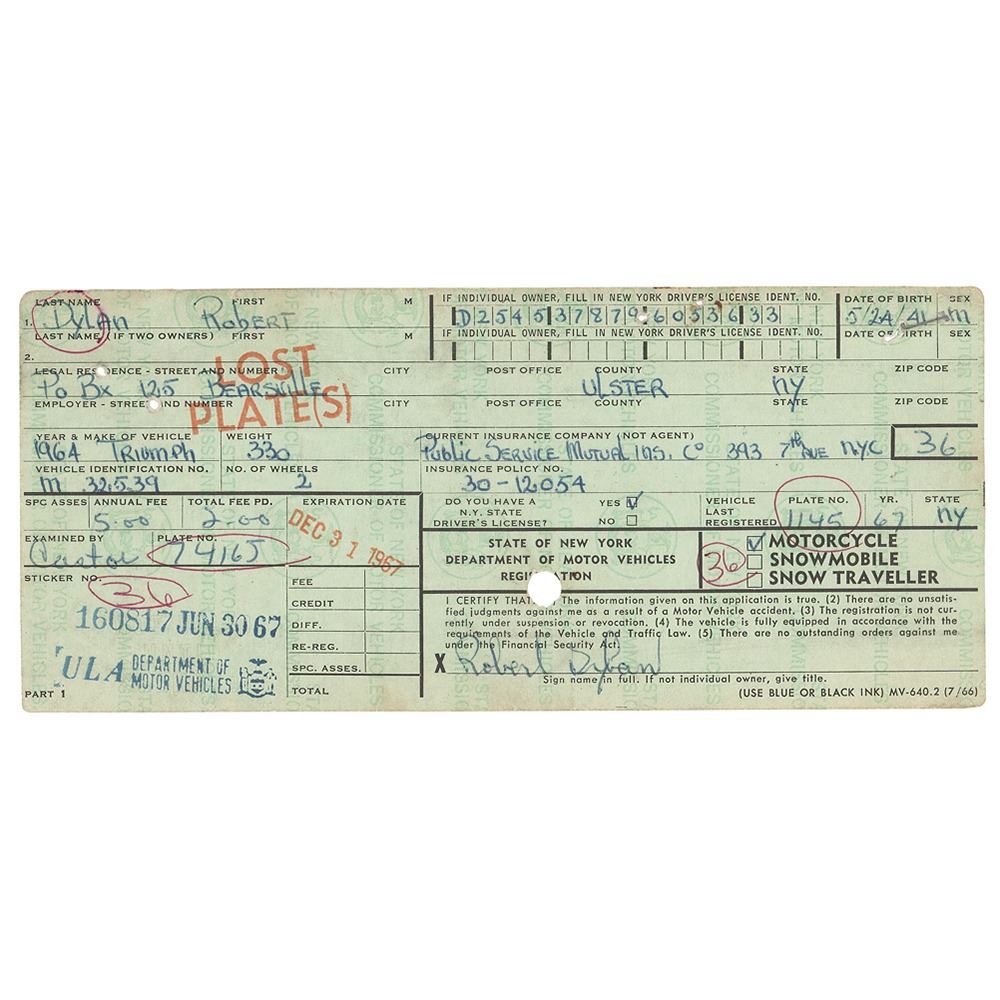 LAST NAME FIRST M IF INDIVIDUAL OWNER, FILL IN NEW YORK DRIVER'S LICENSE IDENT. NO. DATE OF BIRTH SEX
1. Dylan Robert D254537879605363 3 5/24/41 m
LAST NAME (IF TWO OWNERS) FIRST M IF INDIVIDUAL OWNER, FILL IN NEW YORK DRIVER'S LICENSE IDENT. NO. DATE OF BIRTH SEX
2.
LEGAL RESIDENCE - STREET AND NUMBER CITY POST OFFICE COUNTY STATE ZIP CODE
Po Bx 125 Bearsville ULSTER NY
LOST PLATE(S)
EMPLOYER - STREET AND NUMBER CITY POST OFFICE COUNTY STATE ZIP CODE
YEAR & MAKE OF VEHICLE WEIGHT CURRENT INSURANCE COMPANY (NOT AGENT)
1964 Triumph 330 Public Service Mutual Ins. Co 393 7th Ave NYC 36
VEHICLE IDENTIFICATION NO. NO. OF WHEELS INSURANCE POLICY NO.
m 32539 2 30-12054
SPC ASSES ANNUAL FEE TOTAL FEE PD. EXPIRATION DATE DO YOU HAVE A N.Y. STATE DRIVER'S LICENSE? YES NO VEHICLE LAST REGISTERED PLATE NO. YR. STATE
5.00 2.00 DEC 31 1967 1145 67 NY
EXAMINED BY PLATE NO.
74165
STATE OF NEW YORK
DEPARTMENT OF MOTOR VEHICLES
REGISTRATION
36 MOTORCYCLE
SNOWMOBILE
SNOW TRAVELLER
STICKER NO.
36
160817 JUN 30 67
ULA DEPARTMENT OF MOTOR VEHICLES
PART 1
FEE
CREDIT
DIFF.
RE-REG.
SPC. ASSES.
TOTAL
I CERTIFY THAT: (1) The information given on this application is true. (2) There are no unsatis-
fied judgments against me as a result of a Motor Vehicle accident. (3) The registration is not cur-
rently under suspension or revocation. (4) The vehicle is fully equipped in accordance with the
requirements of the Vehicle and Traffic Law. (5) There are no outstanding orders against me
under the Financial Security Act.
X Robert Dylan
Sign name in full. If not individual owner, give title.
(USE BLUE OR BLACK INK) MV-640.2 (7/66)